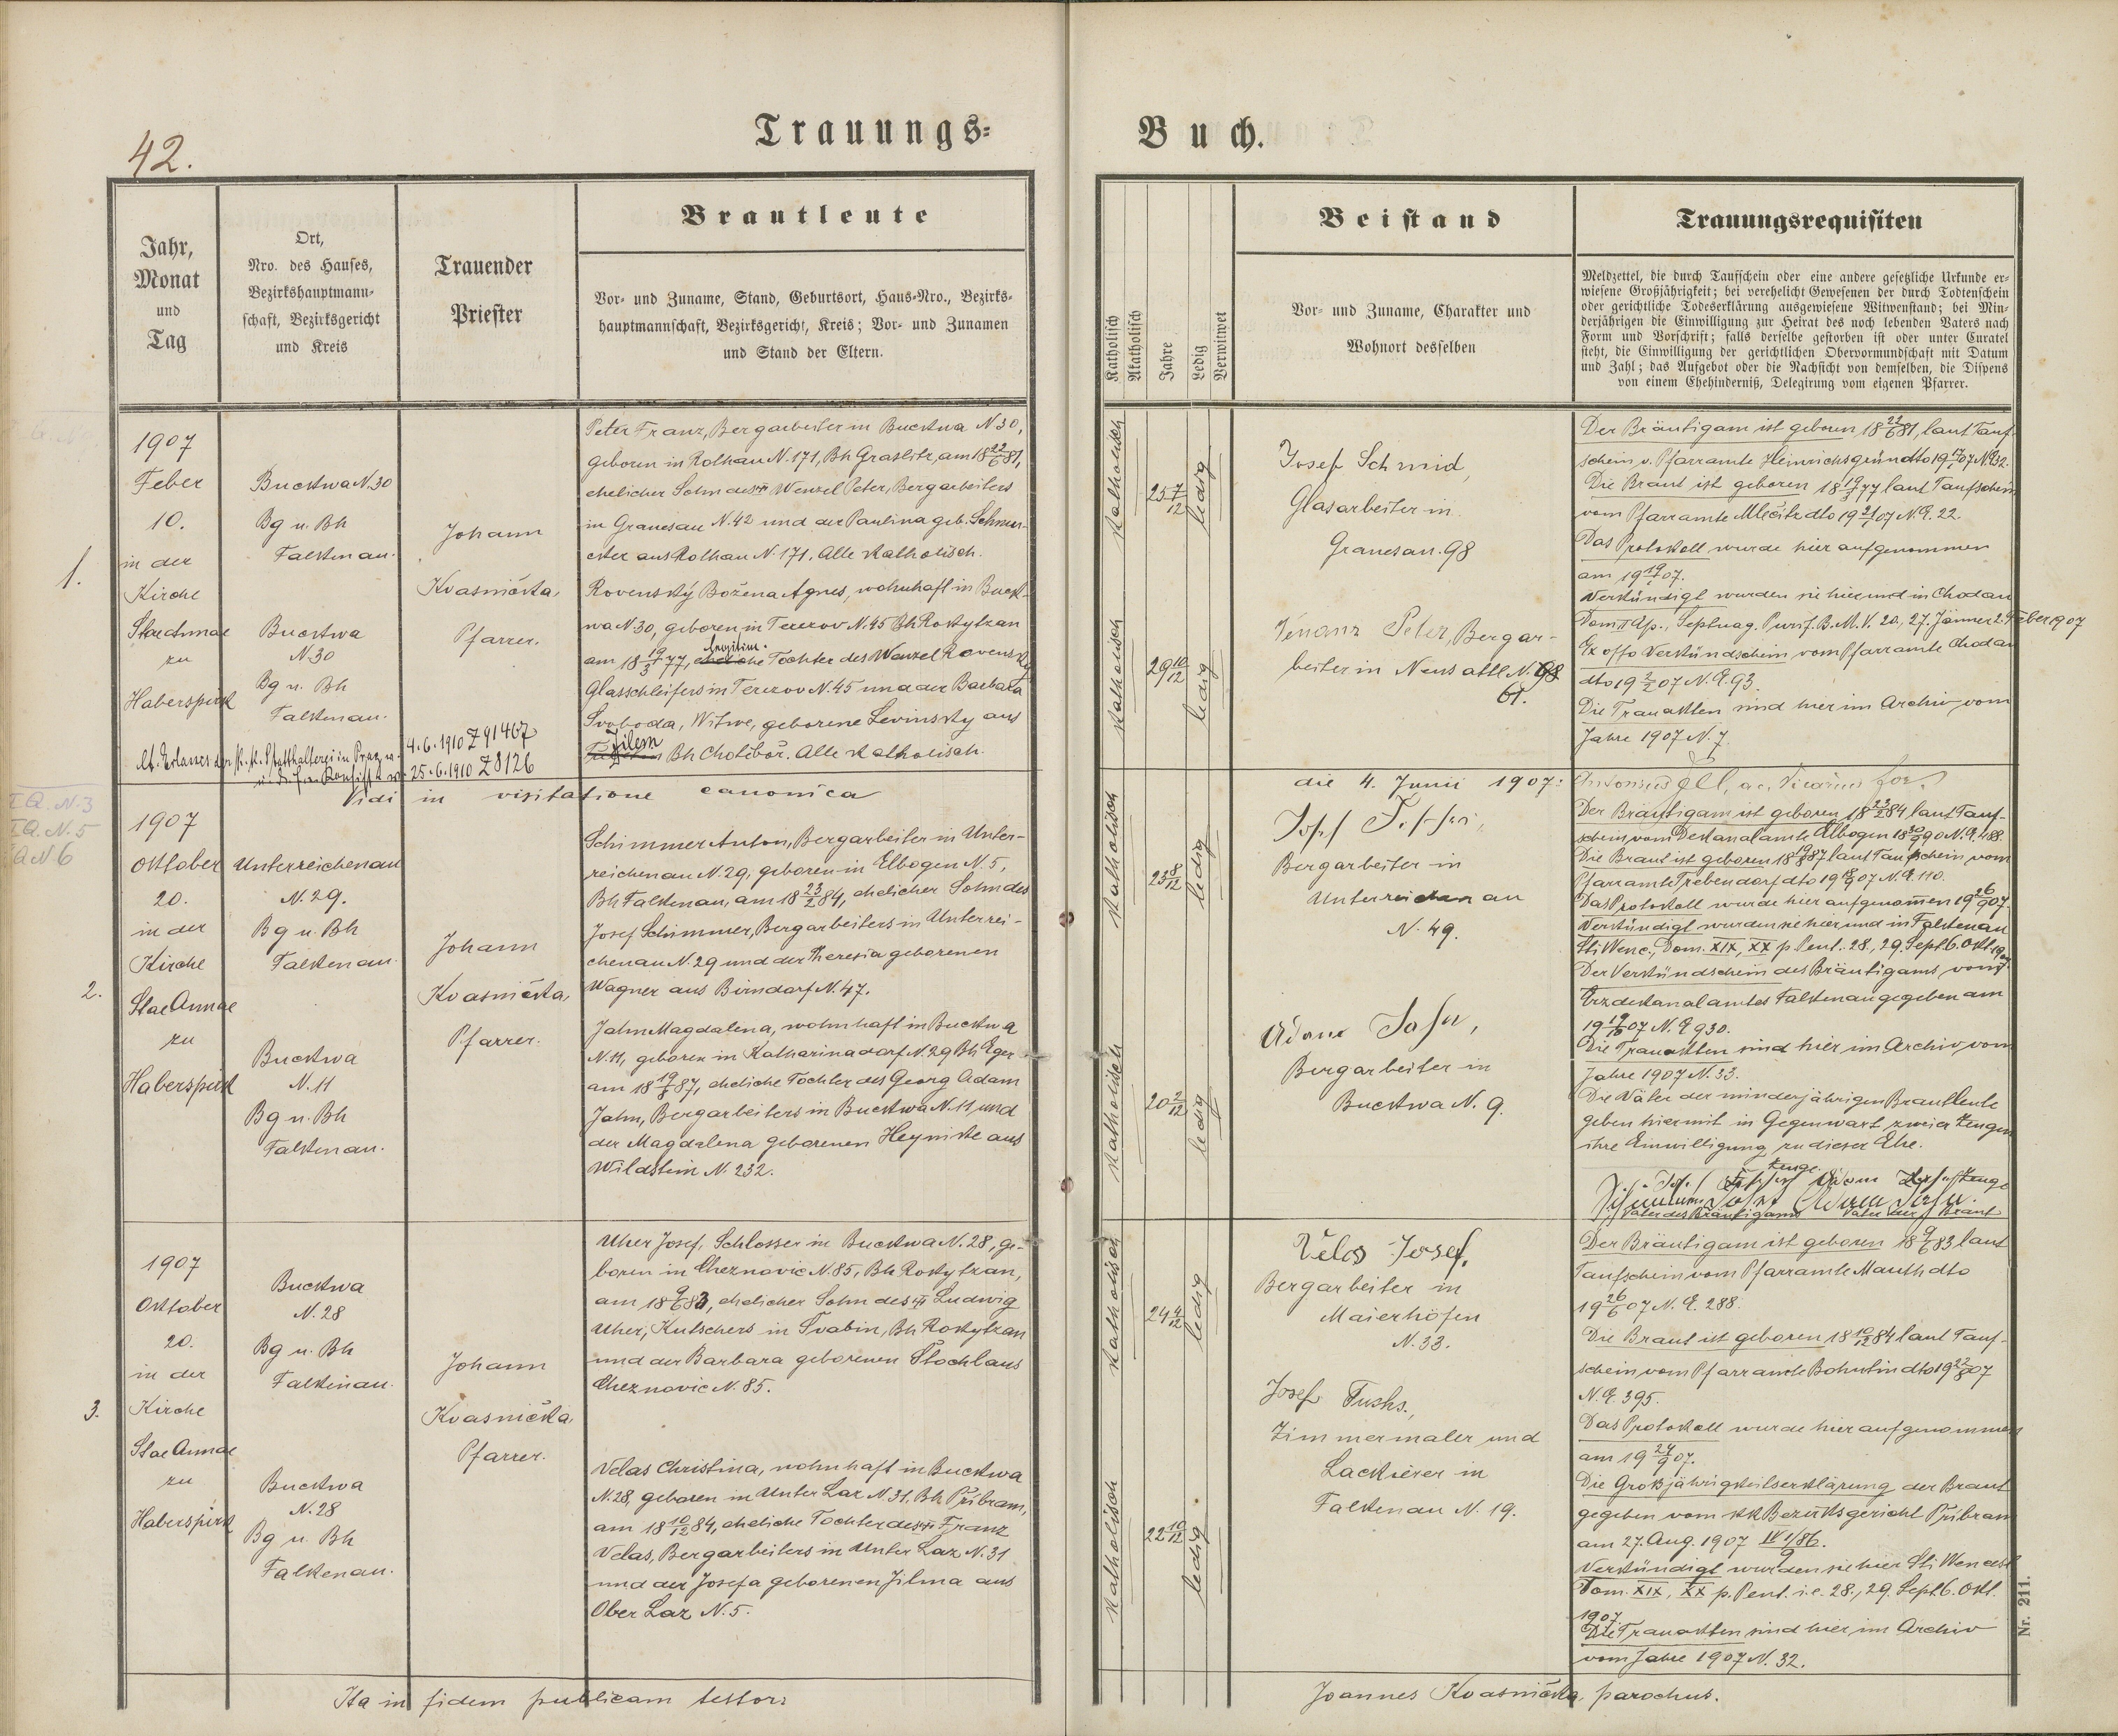 42.
Trauungs-
Buch.
Jahr,
Monat
und
Tag
Ort,
Nro. des Hauses,
Bezirkshauptmann-
schaft, Bezirksgericht
und Kreis
Trauender
Priester
Brautleute
Vor- und Zuname, Stand, Geburtsort, Haus-Nro., Bezirks-
hauptmannschaft, Bezirksgericht, Kreis; Vor- und Zunamen
und Stand der Eltern.
Katholisch
Akatholisch
Jahre
Ledig
Verwitwet
Beistand
Vor- und Zuname, Charakter und
Wohnort desselben
Trauungsrequisiten
Meldzettel, die durch Taufschein oder eine andere gesetzliche Urkunde er-
wiesene Großjährigkeit; bei verehelicht Gewesenen der durch Todtenschein
oder gerichtliche Todeserklärung ausgewiesene Witwenstand; bei Min-
derjährigen die Einwilligung zur Heirat des noch lebenden Vaters nach
Form und Vorschrift; falls derselbe gestorben ist oder unter Curatel
steht, die Einwilligung der gerichtlichen Obervormundschaft mit Datum
und Zahl; das Aufgebot oder die Nachsicht von demselben, die Dispens
von einem Ehehinderniß, Delegirung vom eigenen Pfarrer.
1.
1907
Feber
10.
in der
Kirche
Stae Annae
zu
Haberspirk
Buckwa N. 30
Bg u. Bh
Falkenau.
Buckwa
N. 30
Bg u. Bh
Falkenau.
Johann
Kvasnička,
Pfarrer.
Peter Franz, Bergarbeiter in Buckwa N 30,
geboren in Rothau N. 171, Bh Graslitz, am 18 22/6 81,
ehelicher Sohn des Wenzel Peter, Bergarbeiters
in Granesau N. 42 und der Paulina geb. Schmu-
cker aus Rothau N. 171. Alle katholisch.
Rovenský Božena Agnes, wohnhaft in Buck-
wa N 30, geboren in Terezov N. 45 Bh Rokytzan
legitim.
am 18 19/3 77, eheliche Tochter des Wenzel Rovenský
Glasschleifers in Terezov N. 45 und der Barbara
Svoboda, Witwe, geborene Levinsky aus
Jilem
Bh Chotěboř. Alle katholisch.
lt. Erlasses der k. k. Statthalterei in Prag v. 4. 6. 1910 Z 91467
25. 6. 1910 Z 8126
katholisch
25 7/12
ledig
katholisch
29 10/12
ledig
Josef Schmid,
Glasarbeiter in
Granesau. 98
Venanz Peter, Bergar-
beiter in Neusattl N. 98
61.
Der Bräutigam ist geboren 18 22/6 81, laut Tauf-
schein v. Pfarramte Heinrichsgrün dto 19 07 N. E. 32.
Die Braut ist geboren 18 19/3 77 laut Taufschein
vom Pfarramte Mlečitz dto 19 21/1 07 N. E. 22.
Das Protokoll wurde hier aufgenommen
am 19 19/1 07.
Verkündigt wurden sie hier und in Chodau
Dom II Ap., Septuag. Purif. B. M. V. 20, 27. Jänner 2. Feber 1907
Ex offo Verkündschein vom Pfarramte Chodau
dto 19 2/2 07 N. E. 93.
Die Trauakten sind hier im Archiv vom
Jahre 1907 N. 7.
Vidi in visitatione canonica
die 4. Junii 1907:
2.
1907
Oktober
20.
in der
Kirche
Stae Annae
zu
Haberspirk
Unterreichenau
N. 29.
Bg u. Bh
Falkenau.
Buckwa
N. 11
Bg u. Bh
Falkenau.
Johann
Kvasnička,
Pfarrer.
Schimmer Anton, Bergarbeiter in Unter-
reichenau N. 29, geboren in Elbogen N. 5,
Bh Falkenau, am 18 23/2 84, ehelicher Sohn des
Josef Schimmer, Bergarbeiters in Unterrei-
chenau N. 29 und der Theresia geborenen
Wagner aus Birndorf N. 47.
Jahn Magdalena, wohnhaft in Buckwa
N. 11, geboren in Katharinadorf N. 29 Bh Eger
am 18 19/8 87, eheliche Tochter des Georg Adam
Jahn, Bergarbeiters in Buckwa N. 11 und
der Magdalena geborenen Heynicke aus
Wildstein N. 232.
katholisch
23 8/12
ledig
katholisch
20 2/12
ledig
Bergarbeiter in
Unterreichenau
N. 49.
Adam Jahn,
Bergarbeiter in
Buckwa N. 9.
Der Bräutigam ist geboren 18 23/2 84 laut Tauf-
schein vom Dekanalamte Elbogen 18 90 N. E. 488.
Die Braut ist geboren 18 19/8 87 laut Taufschein vom
Pfarramte Trebendorf dto 19 07 N. E. 110.
Das Protokoll wurde hier aufgenommen 19 26/9 07.
Verkündigt wurden sie hier und in Falkenau
Sti Wenc., Dom. XIX, XX p. Pent. 28., 29. Sept 6. Okt. 1907
Der Verkündschein des Bräutigams vom
Erzdekanalamtes Falkenau gegeben am
19 19/10 07 N. E 930.
Die Trauakten sind hier im Archiv vom
Jahre 1907 N. 33.
Die Väter der minderjährigen Brautleute
geben hiermit in Gegenwart zweier Zeugen
ihre Einwilligung zu dieser Ehe.
Zeuge
Adam Jahn Zeuge
Vater des Bräutigams Vater der Braut
3.
1907
Oktober
20.
in der
Kirche
Stae Annae
zu
Haberspirk
Buckwa
N. 28
Bg u. Bh
Falkenau.
Buckwa
N. 28
Bg u. Bh
Falkenau.
Johann
Kvasnička,
Pfarrer.
Uher Josef, Schlosser in Buckwa N. 28, ge-
boren in Cheznovic N. 85, Bh Rokytzan,
am 18 9/6 83, ehelicher Sohn des Ludwig
Uher, Kutschers in Švabin, Bh Rokytzan
und der Barbara geborenen Štochl aus
Cheznovic N. 85.
Velas Christina, wohnhaft in Buckwa
N. 28, geboren in Unter Laz N. 31, Bh Příbram,
am 18 10/12 84, eheliche Tochter des Franz
Velas, Bergarbeiters in Unter Laz N. 31
und der Josefa geborenen Jilma aus
Ober Laz N. 5.
katholisch
24 4/12
ledig
katholisch
22 10/12
ledig
Velas Josef,
Bergarbeiter in
Maierhöfen
N. 33.
Josef Fuchs.,
Zimmermaler und
Lackierer in
Falkenau N. 19.
Der Bräutigam ist geboren 18 9/6 83 laut
Taufschein vom Pfarramte Mauth dto
19 26/6 07 N. E. 288.
Die Braut ist geboren 18 10/12 84 laut Tauf-
schein vom Pfarramte Bohutin dto 19 22/8 07
N. E. 395.
Das Protokoll wurde hier aufgenommen
am 19 24/9 07.
Die Großjährigkeitserklärung der Braut
gegeben vom kk Bezirksgericht Příbram
am 27. Aug. 1907
Verkündigt wurden sie hier Sti Wencesl
Dom. XIX, XX p. Pent. i. e. 28., 29. Sept 6. Okt.
1907.
Die Trauakten sind hier im Archiv
vom Jahre 1907 N. 32.
Nr. 211.
Ita in fidem publicam testor:
Joannes Kvasnička, parochus.